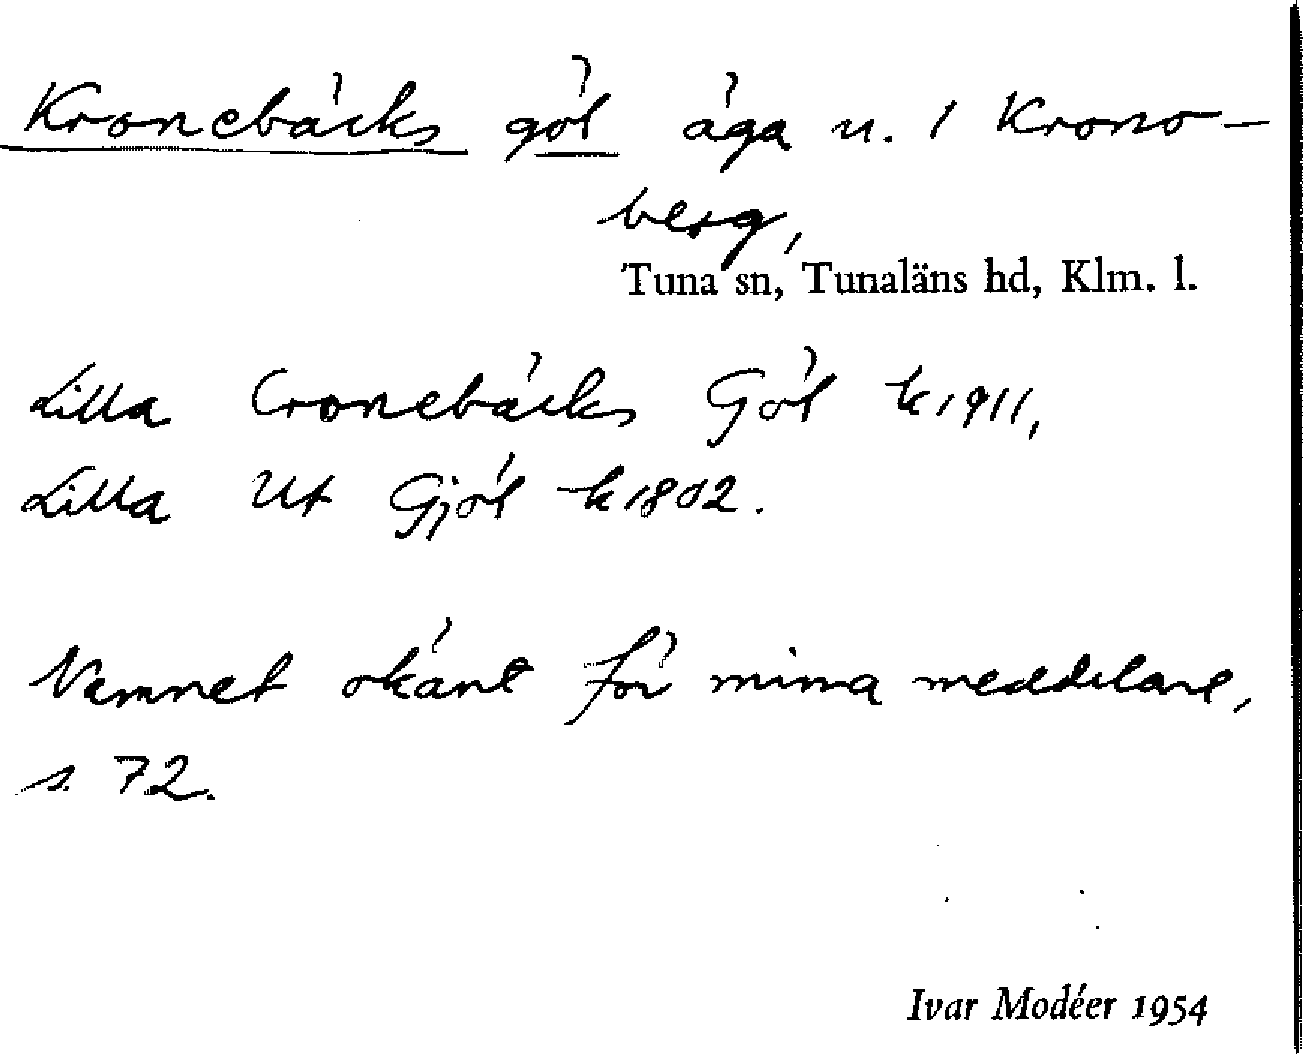 Kronebäcks göl äga u. 1 Krono-
berg,
Tuna sn, Tunaläns hd, Klm. l.
Lilla Cronebäcks Göl k 1911,
Lilla Ut Gjöl k 1802.
Namnet okänt för mina meddelare,
s. 72.
Ivar Modéer 1954